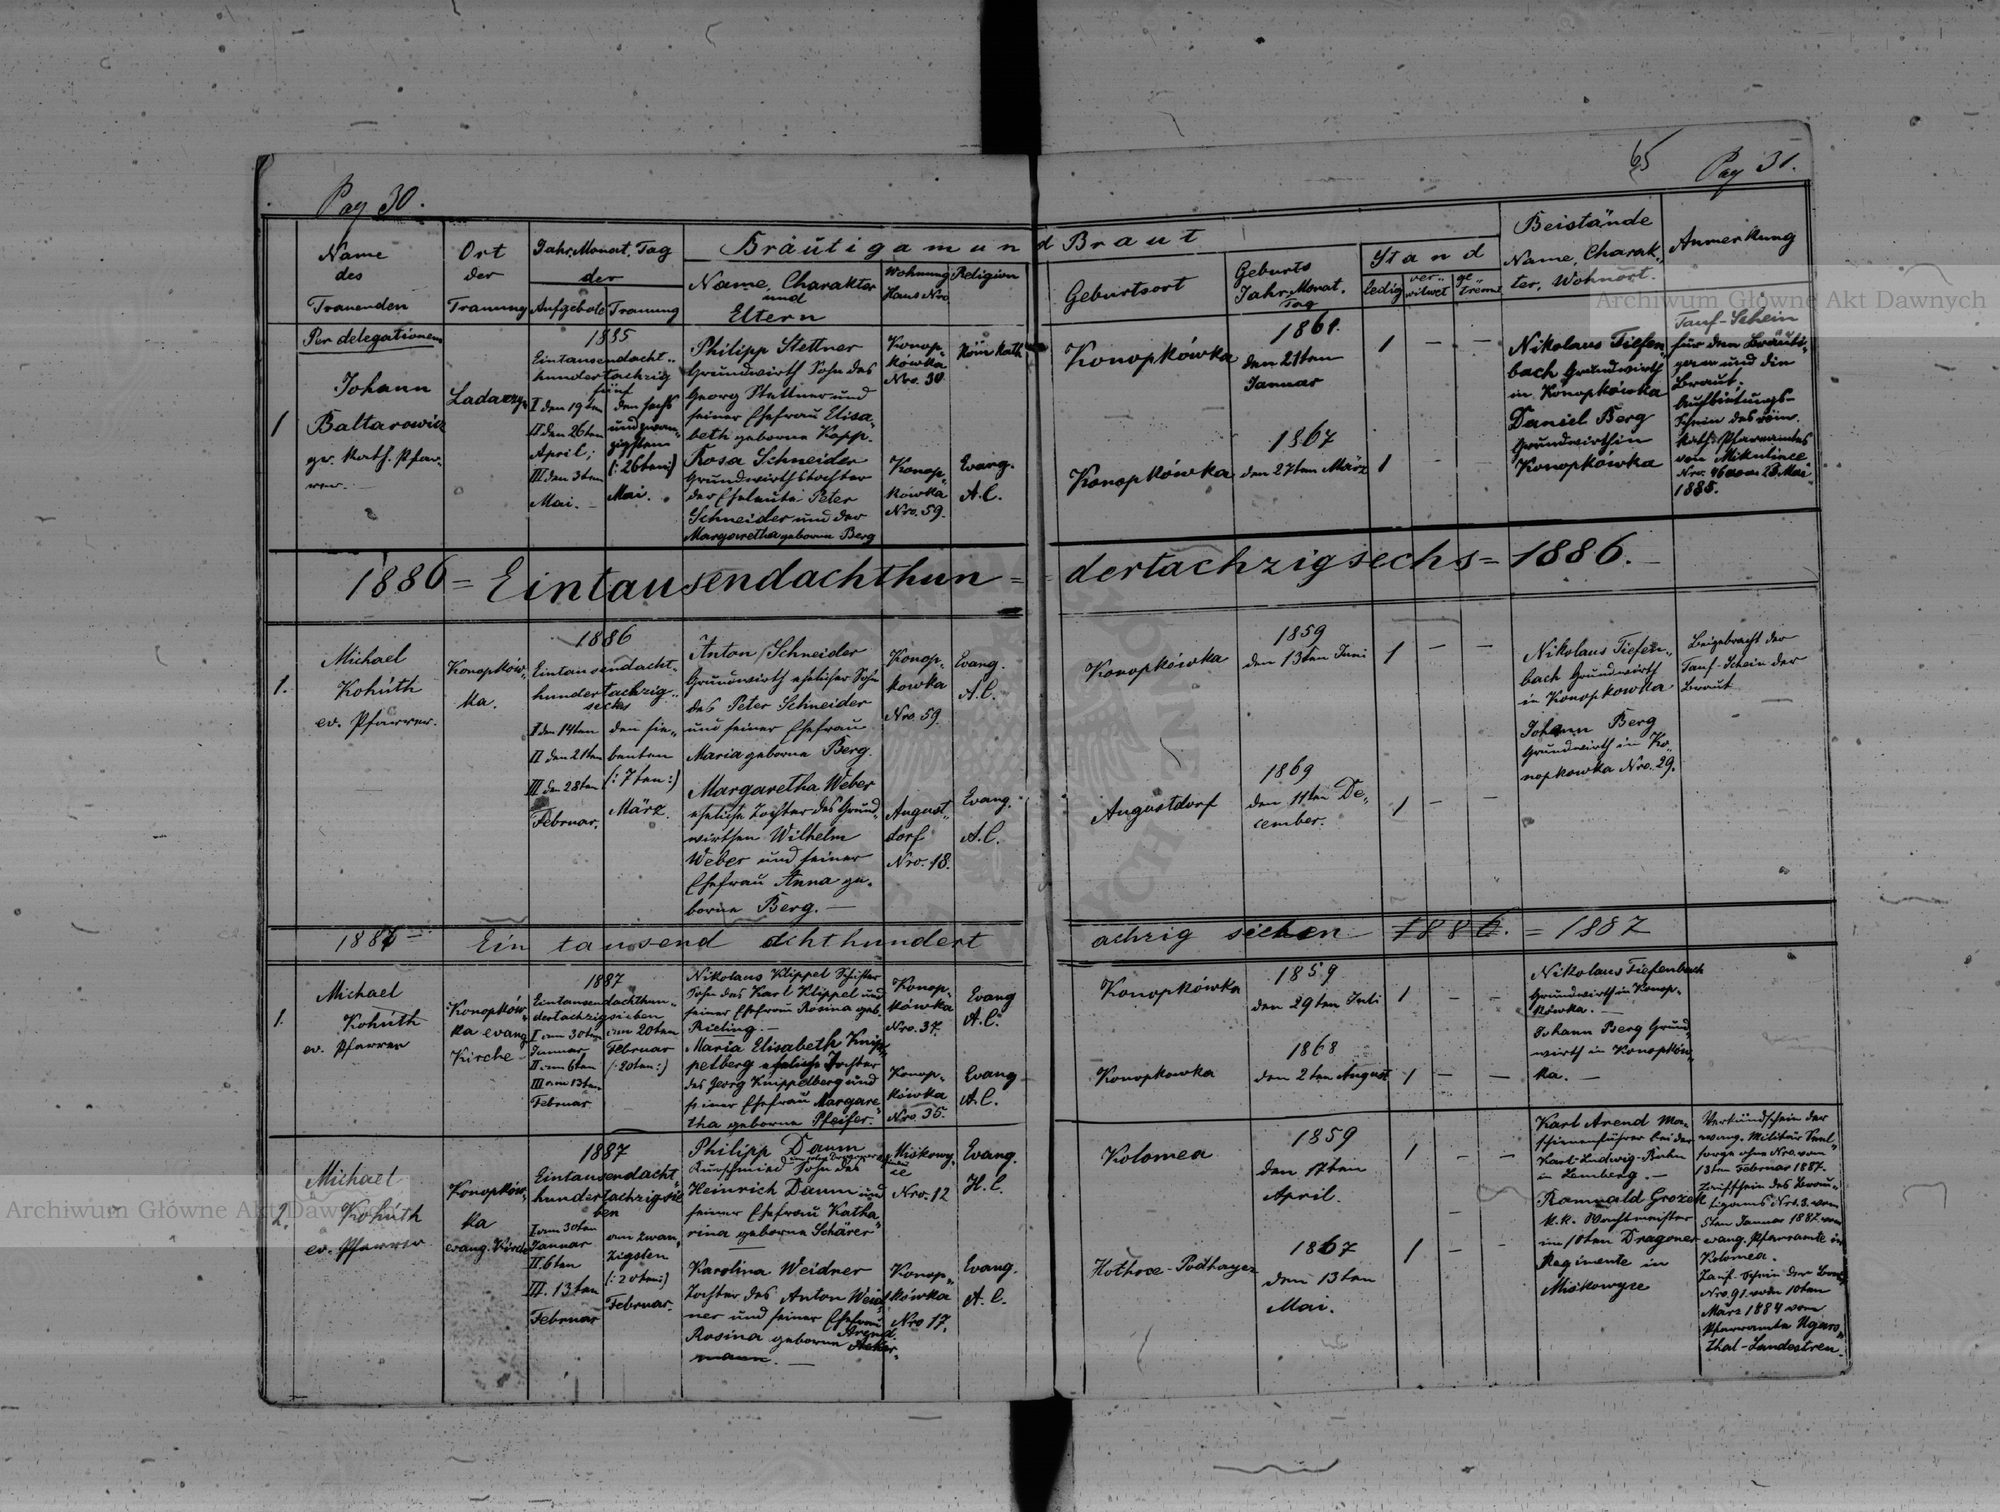 Pag 30.
65
Pag 31.
Name des Trauenden
Ort der Trauung
Jahr, Monat, Tag der
Aufgebote
Trauung
Bräutigam und Braut
Name, Charakter und Eltern
Wohnung Haus Nro
Religion
Geburtsort
Geburts Jahr, Monat, Tag
Stand
ledig
ver-
witwet
ge-
trennt
Beistände
Name, Charak-
ter, Wohnort.
Anmerkung
1
Per delegationem
Johann
Baltarowicz
gr. Kath. Pfar-
rer.
1885
Eintausendacht-
hundertachzig
fünf
I den 19ten
II den 26ten
April;
III den 3ten
Mai.
den sechs
und zwan-
zigsten
(: 26ten :)
Mai.
Philipp Stettner
Grundwirth Sohn des
Georg Stettner und
seiner Ehefrau Elisa-
beth geborne Kopp.
Rosa Schneider
Grundwirthstochter
der Eheleute Peter
Schneider und der
Margaretha geborne Berg
Konop-
kówka
Nro. 30
Röm Kath
Konop-
kówka
Nro. 59.
Evang.
A.C.
Konopkówka
1861.
den 21ten
Januar
1 — —
Konopkówka
1867
den 27ten März
1 — —
Nikolaus Tiefen-
bach Grundwirth
in Konopkówka
Daniel Berg
Grundwirth in
Konopkówka
Tauf-Schein
für den Bräuti-
gam und die
Braut;
Aufbietungs-
Schein des röm.
kath. Pfarramtes
von Mikulince
1885.
1886 = Eintausendachthun = dertachzigsechs = 1886. —
1.
Michael
Kohúth
ev. Pfarrer.
Konopków-
ka.
1886
Eintausendacht-
hundertachzig-
sechs
I den 14ten
II den 21ten
III den 28ten
Februar.
den sie-
benten
(: 7ten :)
März.
Anton Schneider
Grundwirth ehelicher Sohn
des Peter Schneider
und seiner Ehefrau
Maria geborne Berg.
Margaretha Weber
eheliche Tochter des Grund-
wirthen Wilhelm
Weber und seiner
Ehefrau Anna ge-
borne Berg. —
Konop-
kowka
Nro. 59.
Evang.
A.C.
August-
dorf
Nro. 18.
Evang.
A.C.
Konopkówka
1859
den 13ten Juni
1 — —
Augustdorf
1869
den 11ten De-
cember.
1 — —
Nikolaus Tiefen-
bach Grundwirth
in Konopkowka
Johann Berg
Grundwirth in Ko-
nopkowka Nro. 29.
Beigebracht der
Tauf-Schein der
Braut
1887 — Ein tausend achthundert achzig sieben 1886. = 1887
1.
Michael
Kohúth
ev. Pfarrer
Konopków-
ka evang
Kirche
1887
Eintausendachthun-
dertachzigsieben
I am 30ten
Januar
II am 6ten
III am 13ten
Februar
am 20ten
Februar
(: 20ten :)
Nikolaus Klippel
Sohn des Karl Klippel und
seiner Ehefrau Rosina geb.
Rieling. —
Maria Elisabeth Knip-
pelberg eheliche Tochter
des Georg Knippelberg und
seiner Ehefrau Margare-
tha geborne Pfeifer.
Konop-
kówka
Nro. 37.
Evang
A.C.
Konop-
kówka
Nro. 35.
Evang
A.C.
Konopkówka
1859
den 29ten Juli
1 — —
Konopkowka
1868
den 2ten August
1 — —
Nikolaus Tiefenbach
Grundwirth in Konop-
kówka. —
Johann Berg Grund-
wirth in Konopków-
ka. —
2.
Michael
Kohúth
ev. Pfarrer
Konopków-
ka
evang. Kirche
1887
Eintausendacht-
hundertachzigsie
ben
I am 30ten
Januar
II. 6ten
III. 13ten
Februar
am zwan-
zigsten
(: 20ten :)
Februar.
Philipp Daum
Kurschmied Sohn des
Heinrich Daum und
seiner Ehefrau Katha-
rina geborne Schärer
Karolina Weidner
Tochter des Anton Weid-
ner und seiner Ehefrau
Rosina geborne Arend.
Acker-
mann. —
Nro. 12
Evang.
H.C.
Konop-
kówka
Nro 17.
Evang.
A.C.
Kolomea
1859
den 17ten
April.
1 — —
1867
den 13ten
Mai.
1 — —
Karl Arend Ma-
schienenführer bei der
Karl-Ludwig-Bahn
in Lemberg. —
Romuald Grozek
k.k. Wachtmeister
im 10ten Dragoner
Regimente in
Verkündschein der
evang. Militär Seel-
sorge ohne Nro. vom
13ten Februar 1887.
Taufschein des Bräu-
tigams Nro. 3. vom
5ten Januar 1887 vom
evang. Pfarramte in
Kolomea.
Tauf-Schein der Braut
Nro. 91. vom 10ten
März 1884 vom
Pfarramte Ugars-
thal-Landestreu.
Archiwum Główne Akt Dawnych
Archiwum Główne Akt Dawnych